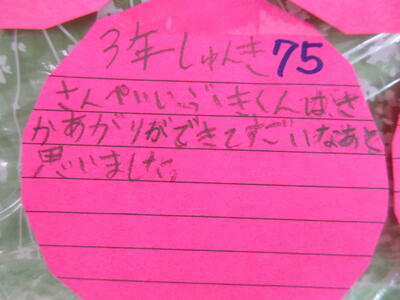 3年しゅんき 75
さんぺいいぶきくんは、さ
かあがりができてすごいなあと
思いました。